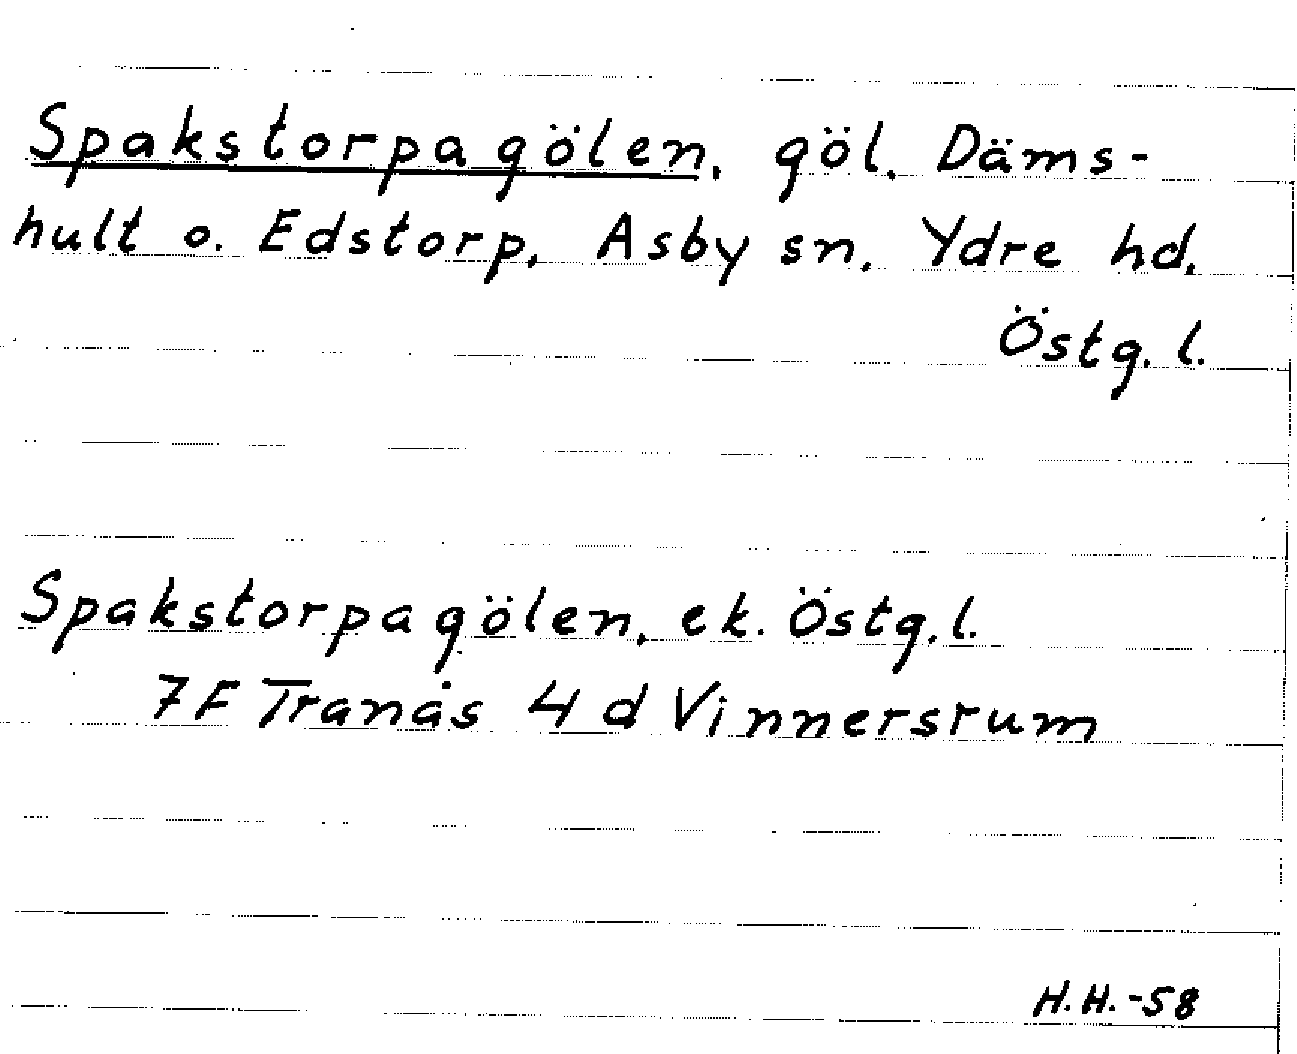 Spakstorpagölen, göl. Däms-
hult o. Edstorp, Asby sn, Ydre hd,
Östg. l.
Spakstorpagölen, ek. Östg. l.
7F Tranås 4 d Vinnersrum
H.H.-58